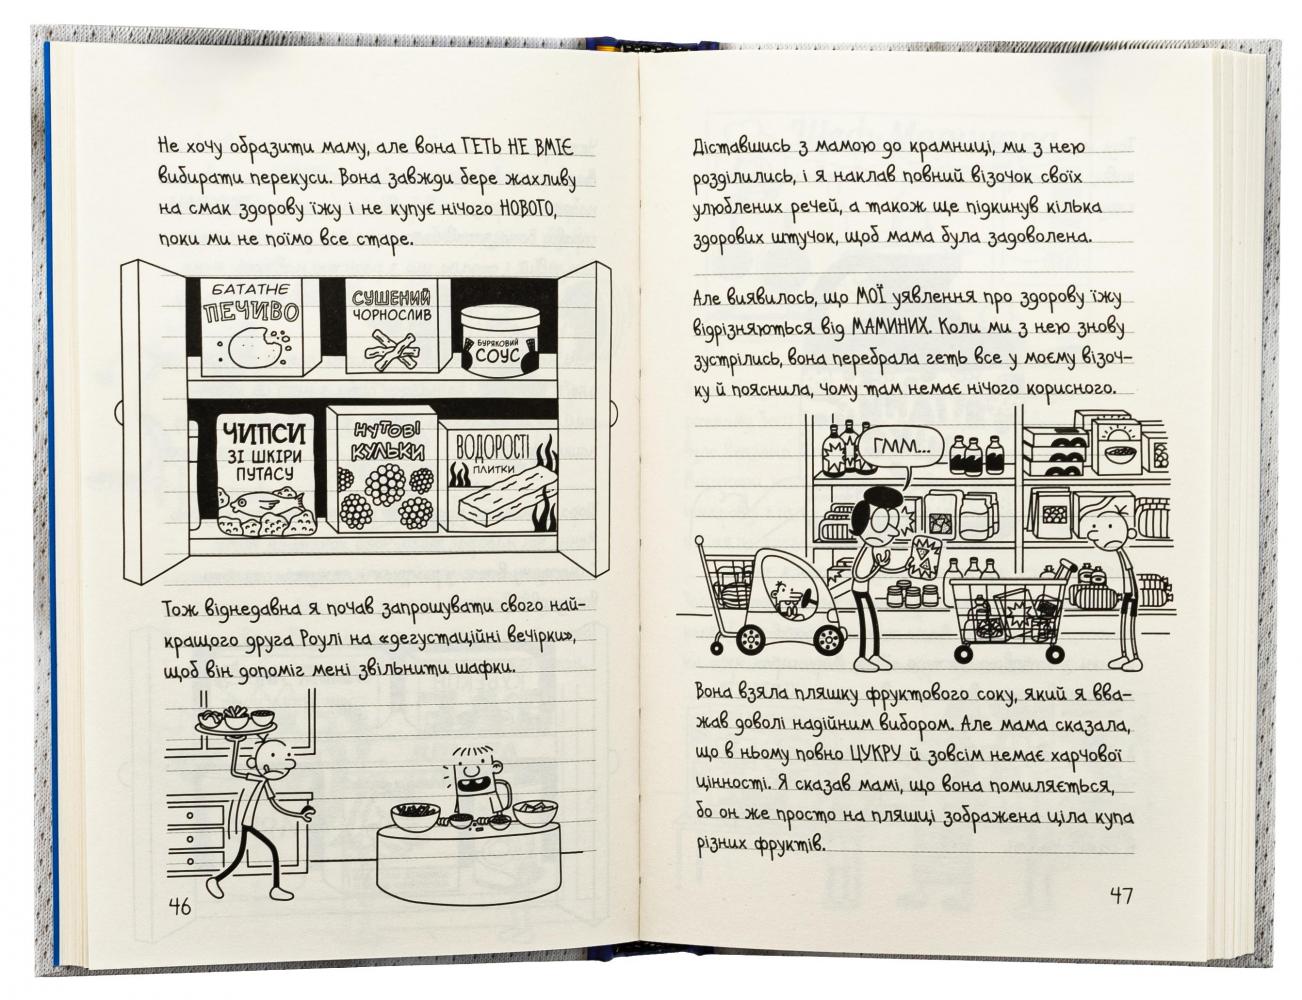 Не хочу образити маму, але вона ГЕТЬ НЕ ВМІЄ
вибирати перекуси. Вона завжди бере жахливу
на смак здорову їжу і не купує нічого НОВОГО,
поки ми не поїмо все старе.
БАТАТНЕ
ПЕЧИВО
СУШЕНИЙ
ЧОРНОСЛИВ
БУРЯКОВИЙ
СОУС
ЧИПСИ
ЗІ ШКІРИ
ПУТАСУ
НУТОВІ
КУЛЬКИ
ВОДОРОСТІ
ПЛИТКИ
Тож віднедавна я почав запрошувати свого най-
кращого друга Роулі на «дегустаційні вечірки»,
щоб він допоміг мені звільнити шафки.
46
Діставшись з мамою до крамниці, ми з нею
розділились, і я наклав повний візочок своїх
улюблених речей, а також ще підкинув кілька
здорових штучок, щоб мама була задоволена.
Але виявилось, що МОЇ уявлення про здорову їжу
відрізняються від МАМИНИХ. Коли ми з нею знову
зустрілись, вона перебрала геть все у моєму візоч-
ку й пояснила, чому там немає нічого корисного.
ГММ...
Вона взяла пляшку фруктового соку, який я вва-
жав доволі надійним вибором. Але мама сказала,
що в ньому повно ЦУКРУ й зовсім немає харчової
цінності. Я сказав мамі, що вона помиляється,
бо он же просто на пляшці зображена ціла купа
різних фруктів.
47